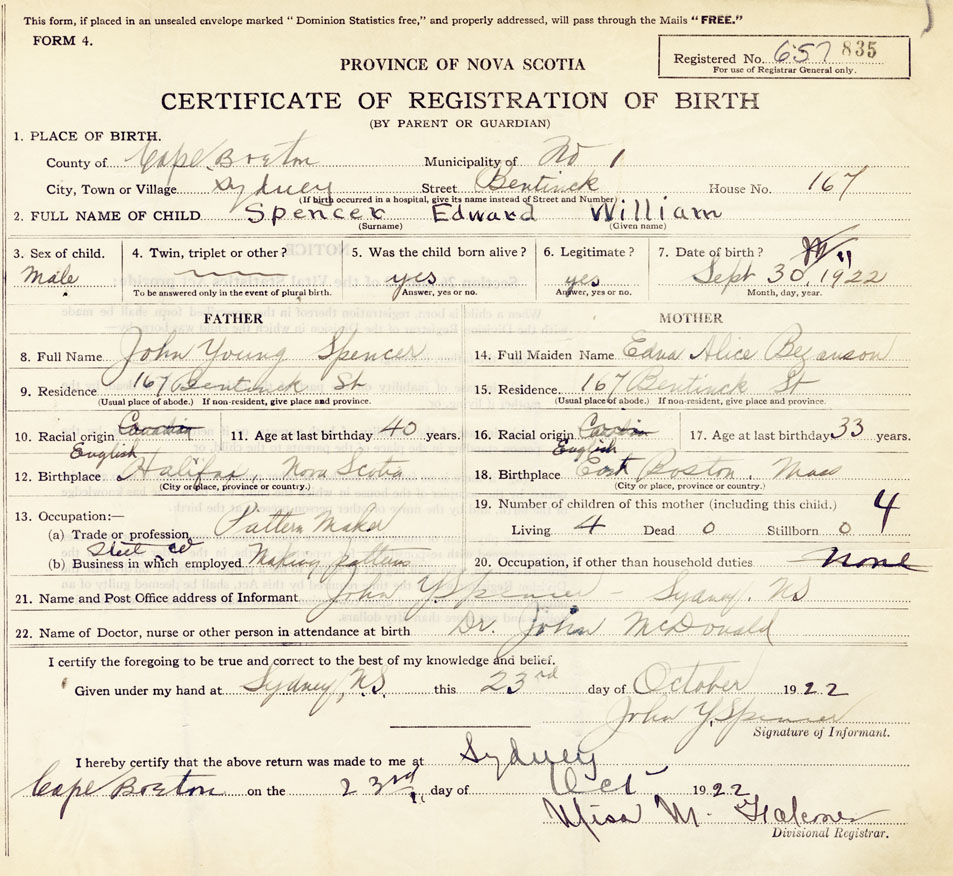 This form, if placed in an unsealed envelope marked "Dominion Statistics free," and properly addressed, will pass through the Mails "FREE."
FORM 4.
Registered No. 657 835
For use of Registrar General only.
PROVINCE OF NOVA SCOTIA
CERTIFICATE OF REGISTRATION OF BIRTH
(BY PARENT OR GUARDIAN)
1. PLACE OF BIRTH.
County of Cape Breton Municipality of No 1
City, Town or Village Sydney Street Bentinck House No. 167
(If birth occurred in a hospital, give its name instead of Street and Number)
2. FULL NAME OF CHILD Spencer Edward William
(Surname) (Given name)
3. Sex of child. 4. Twin, triplet or other? 5. Was the child born alive? 6. Legitimate? 7. Date of birth?
Male yes yes Sept 30, 1922
To be answered only in the event of plural birth. Answer, yes or no. Answer, yes or no. Month, day, year.
FATHER MOTHER
8. Full Name John Young Spencer 14. Full Maiden Name Edna Alice Bezanson
9. Residence 167 Bentinck St 15. Residence 167 Bentinck St
(Usual place of abode.) If non-resident, give place and province. (Usual place of abode.) If non-resident, give place and province.
10. Racial origin Canadian 11. Age at last birthday 40 years. 16. Racial origin 17. Age at last birthday 33 years.
English English
12. Birthplace Halifax, Nova Scotia 18. Birthplace East Boston, Mass
(City or place, province or country.) (City or place, province or country.)
13. Occupation:— 19. Number of children of this mother (including this child.) 4
(a) Trade or profession Pattern Maker Living 4 Dead 0 Stillborn 0
Steel co
(b) Business in which employed Making patterns 20. Occupation, if other than household duties None
21. Name and Post Office address of Informant John Y Spencer - Sydney. NS
22. Name of Doctor, nurse or other person in attendance at birth Dr. John McDonald
I certify the foregoing to be true and correct to the best of my knowledge and belief.
Given under my hand at Sydney, N.S. this 23rd day of October 1922
John Y. Spencer
Signature of Informant.
I hereby certify that the above return was made to me at Sydney
Cape Breton on the 23rd day of Oct 1922
Miss M. Falconer
Divisional Registrar.